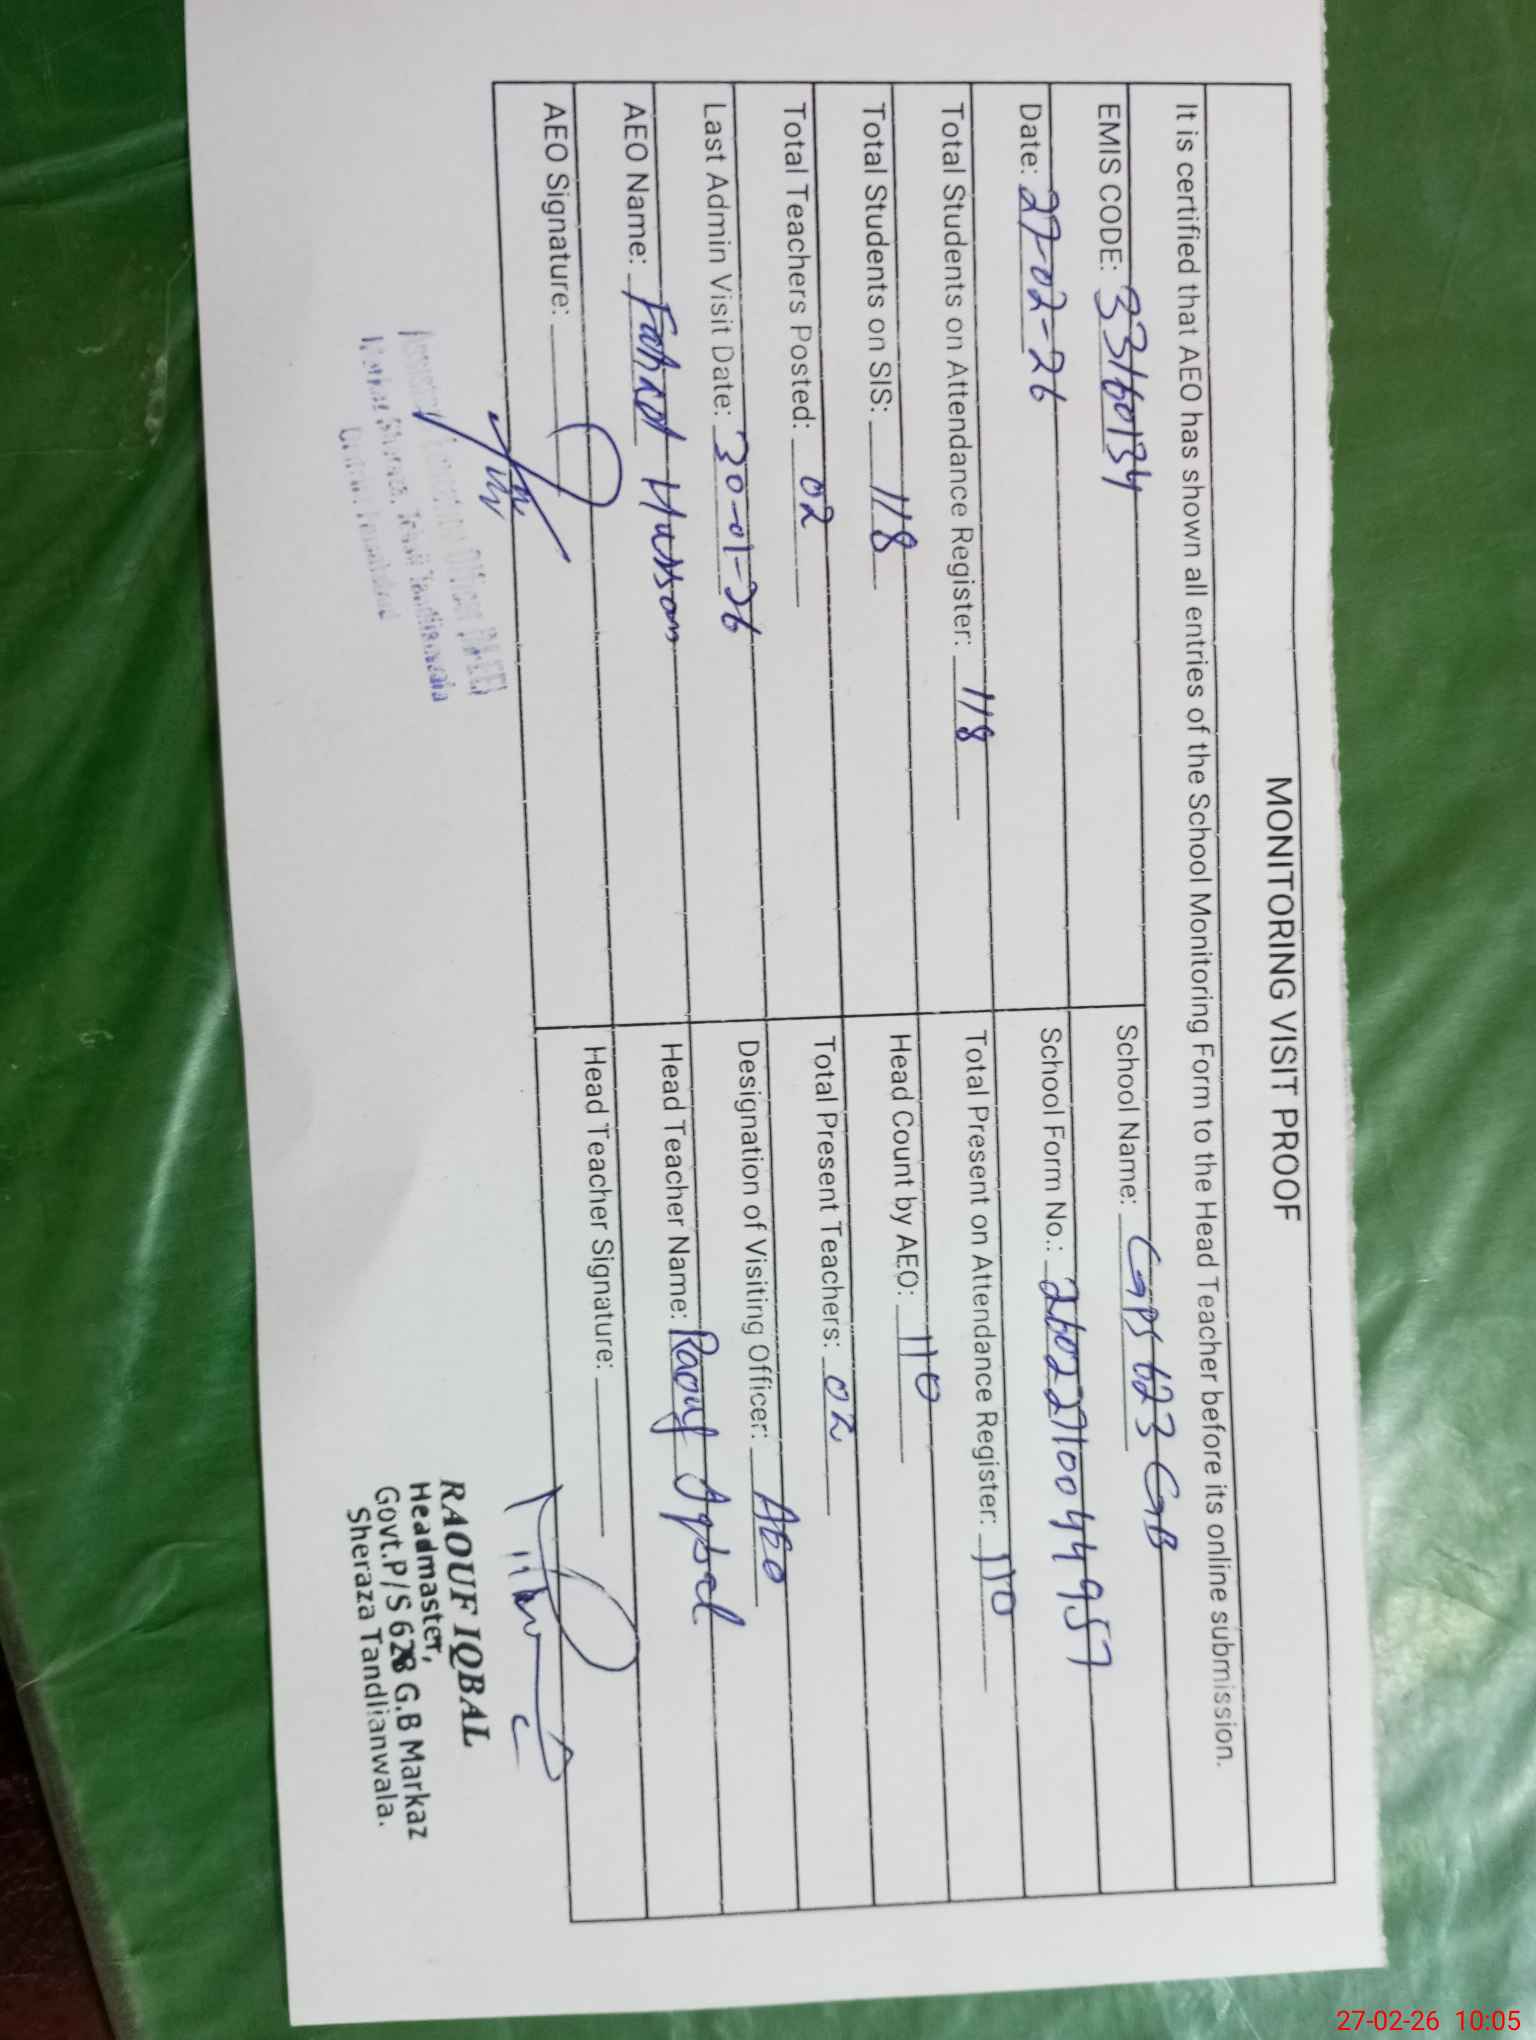 MONITORING VISIT PROOF
It is certified that AEO has shown all entries of the School Monitoring Form to the Head Teacher before its online submission.
EMIS CODE: 33160134
School Name: GPS 623 GB
Date: 27-02-26
School Form No.: 26022710044957
Total Students on Attendance Register: 118
Total Present on Attendance Register: 110
Total Students on SIS: 118
Head Count by AEO: 110
Total Teachers Posted: 02
Total Present Teachers: 02
Last Admin Visit Date: 30-01-26
Designation of Visiting Officer: AEO
AEO Name: Fahad Hussain
Head Teacher Name: Raouf Iqbal
AEO Signature:
Head Teacher Signature:
Education Officer
Tehsil Tandlianwala
RAOUF IQBAL
Headmaster,
Govt.P/S 623 G.B Markaz
Sheraza Tandlianwala.
27-02-26 10:05